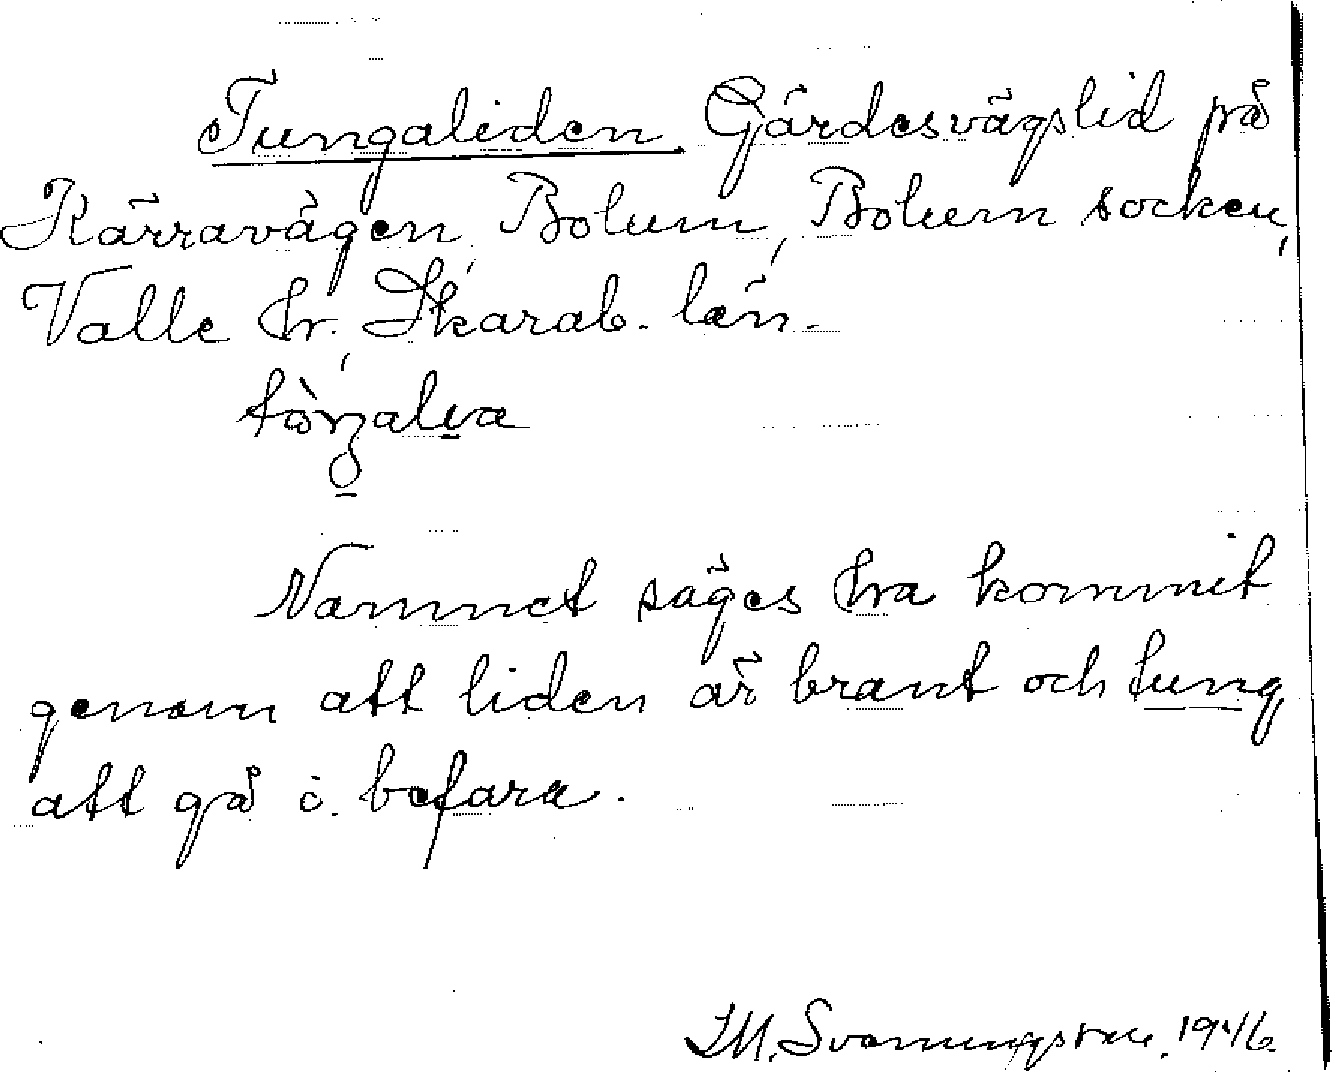 Tungaliden. Gärdesvägslid på
Kärravägen, Bolum, Bolum socken,
Valle hr, Skarab. län.
Namnet säges ha kommit
genom att liden är brant och tung
att gå o. befara.
1946.